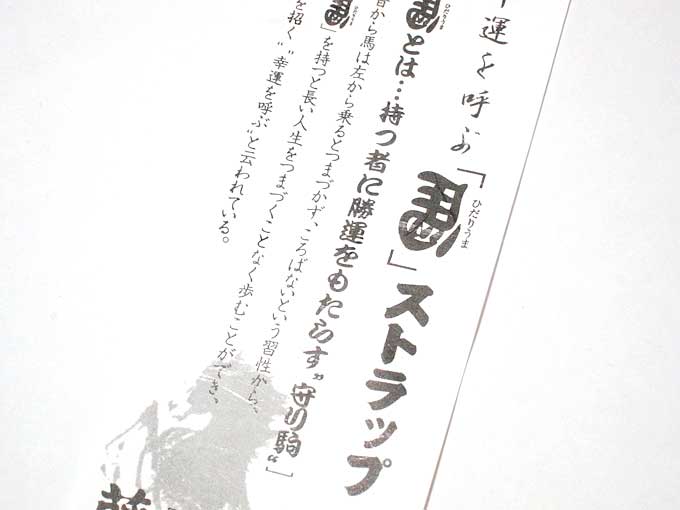 運を呼ぶ「馬」ストラップ
ひだりうま
馬とは…持つ者に勝運をもたらす"守り駒"］
ひだりうま
昔から馬は左から乗るとつまづかず、ころばないという習性から、
馬」を持つと長い人生をつまづくことなく歩むことができ、
ひだりうま
を招く""幸運を呼ぶ"と云われている。